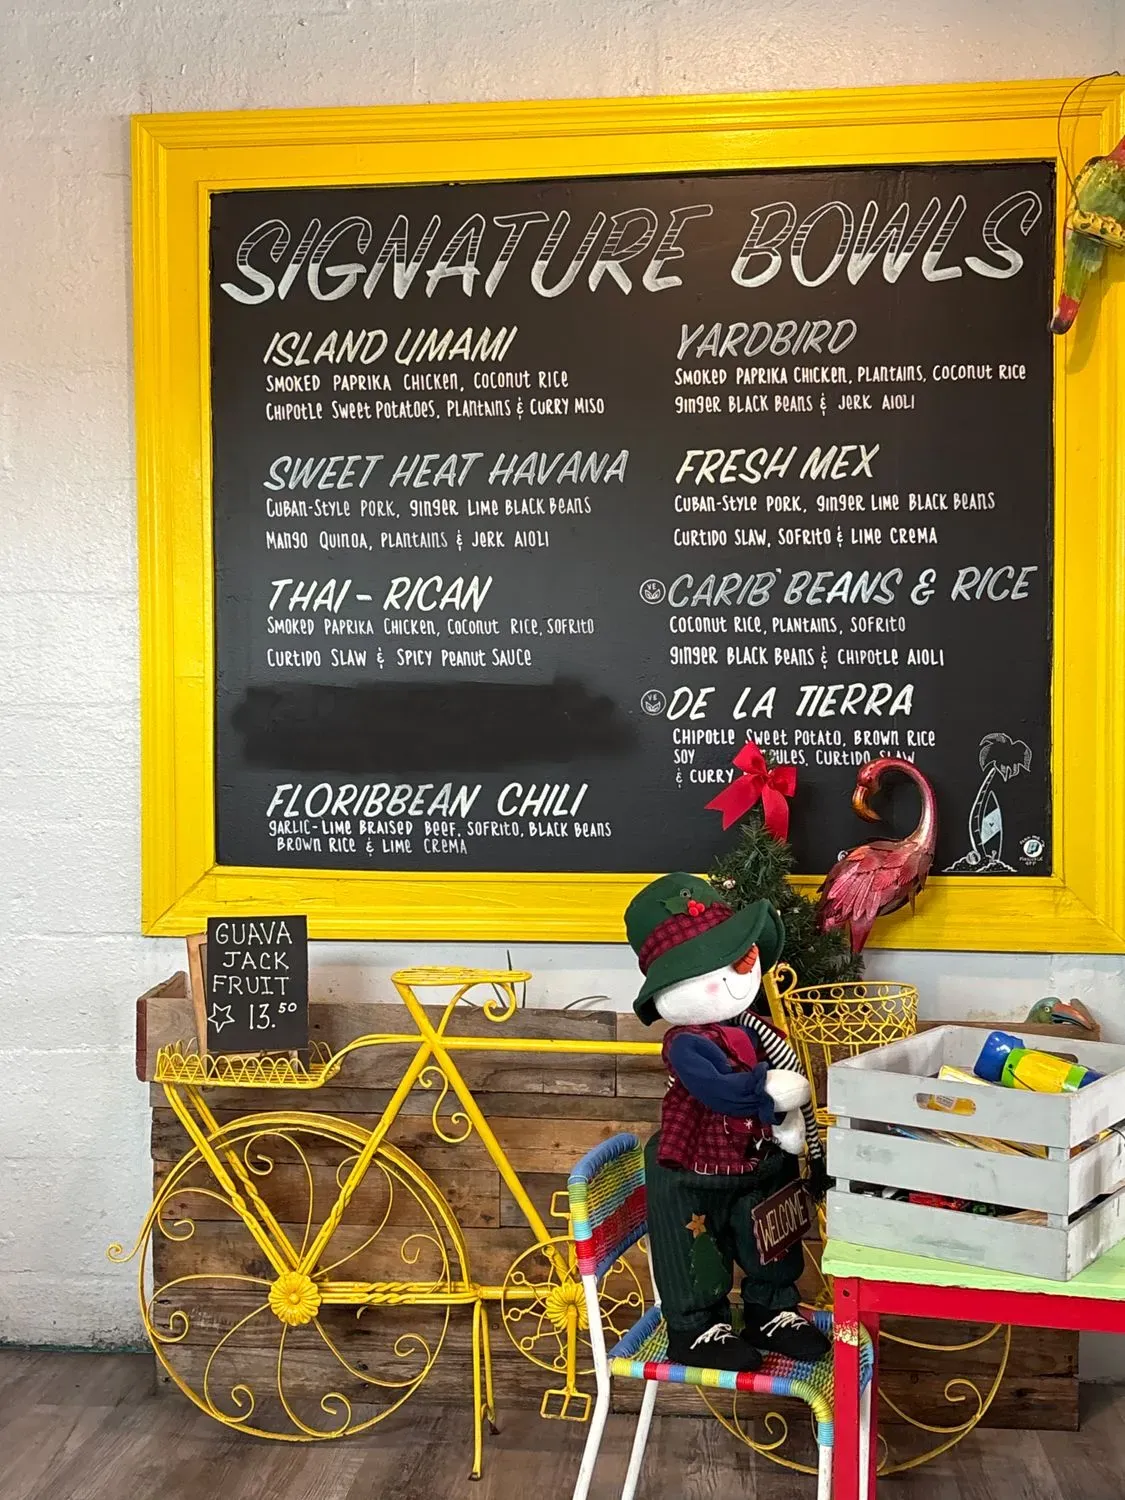 SIGNATURE BOWLS
ISLAND UMAMI
SMOKED PAPRIKA CHICKEN, COCONUT RICE
CHIPOTLE SWEET POTATOES, PLANTAINS & CURRY MISO
SWEET HEAT HAVANA
CUBAN-STYLE PORK, GINGER LIME BLACK BEANS
MANGO QUINOA, PLANTAINS & JERK AIOLI
THAI-RICAN
SMOKED PAPRIKA CHICKEN, COCONUT RICE, SOFRITO
CURTIDO SLAW & SPICY PEANUT SAUCE
FLORIBBEAN CHILI
GARLIC-LIME BRAISED BEEF, SOFRITO, BLACK BEANS
BROWN RICE & LIME CREMA
YARDBIRD
SMOKED PAPRIKA CHICKEN, PLANTAINS, COCONUT RICE
GINGER BLACK BEANS & JERK AIOLI
FRESH MEX
CUBAN-STYLE PORK, GINGER LIME BLACK BEANS
CURTIDO SLAW, SOFRITO & LIME CREMA
VE CARIB'BEANS & RICE
COCONUT RICE, PLANTAINS, SOFRITO
GINGER BLACK BEANS & CHIPOTLE AIOLI
VE DE LA TIERRA
CHIPOTLE SWEET POTATO, BROWN RICE
SOY CURTIDO SLAW
& CURRY
GUAVA
JACK
FRUIT
☆ 13.50
WELCOME